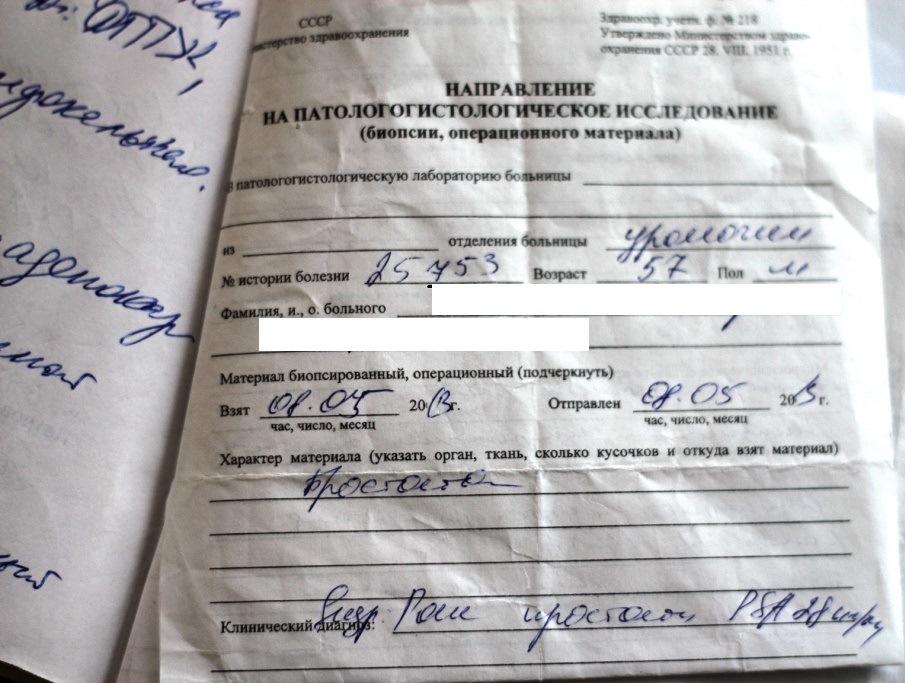 СССР
Министерство здравоохранения
Здравоохр. учетн. ф. № 218
Утверждено Министерством здраво-
охранения СССР 28. VIII. 1951 г.
НАПРАВЛЕНИЕ
НА ПАТОЛОГОГИСТОЛОГИЧЕСКОЕ ИССЛЕДОВАНИЕ
(биопсии, операционного материала)
В патологогистологическую лабораторию больницы
из отделения больницы урологии
№ истории болезни 25753 Возраст 57 Пол м
Фамилия, и., о. больного
Материал биопсированный, операционный (подчеркнуть)
Взят 08.05 2013г. Отправлен 08.05 2013 г.
час, число, месяц час, число, месяц
Характер материала (указать орган, ткань, сколько кусочков и откуда взят материал)
простата
Клинический диагноз: Рак простаты